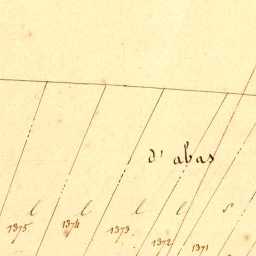 d' abas
l l l l s
1375 1374 1373 1372 1371